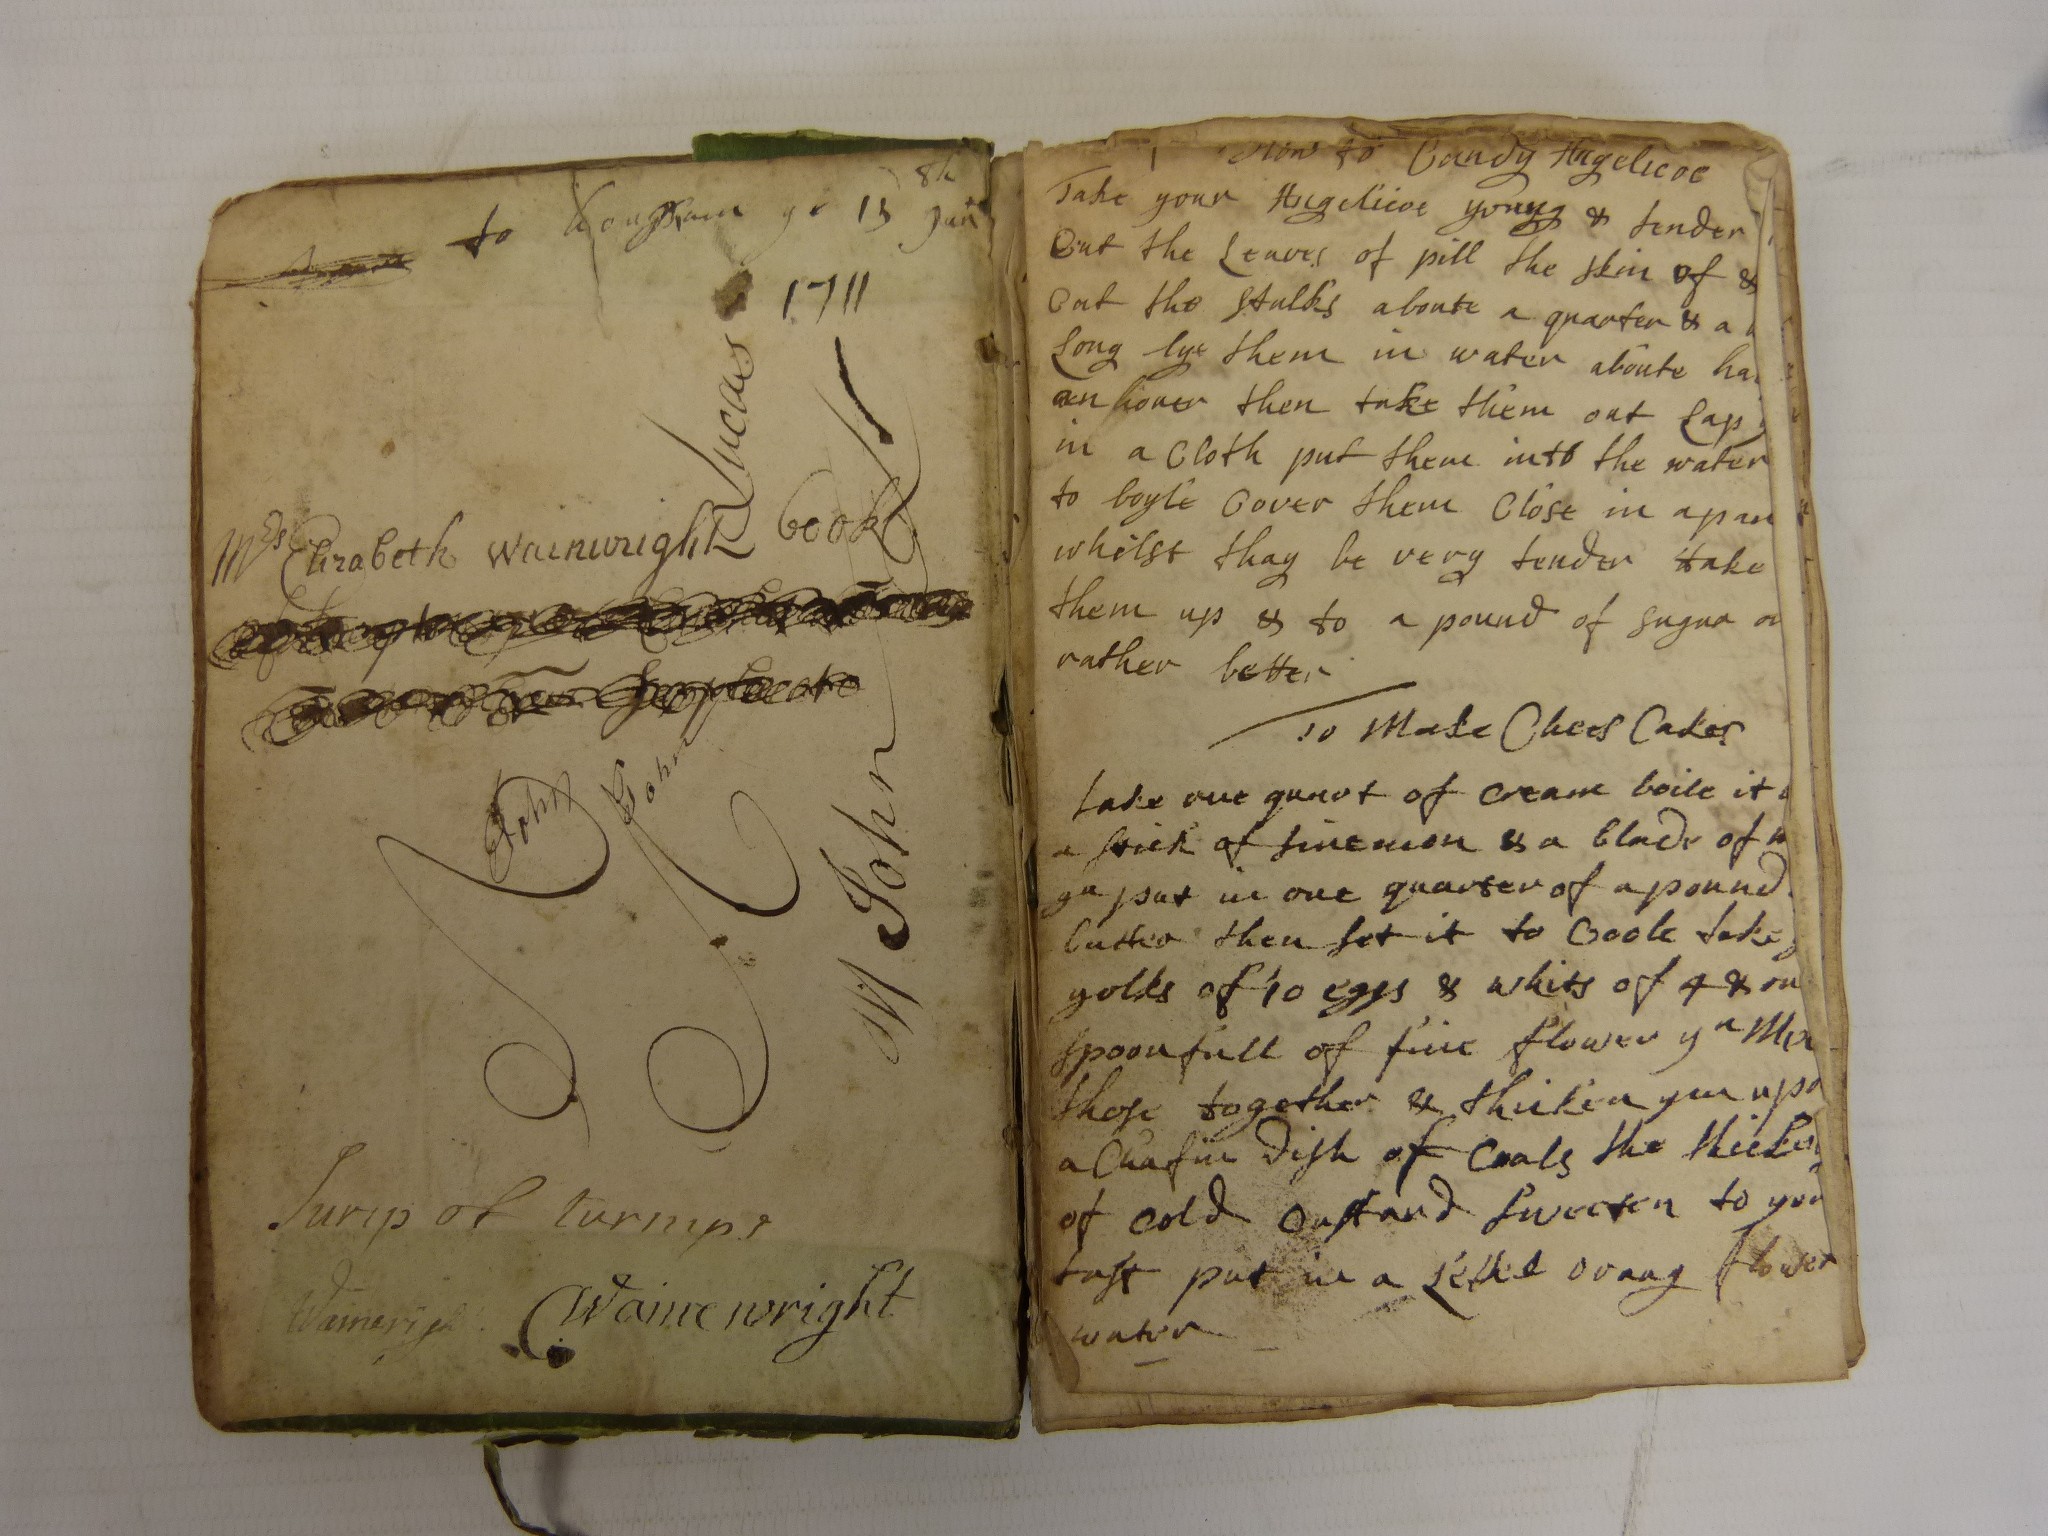 to ye 13 8th June
1711
Lucas
Mrs Elizabeth Wainwright book
John
John
W John
Surip of turnips
Wainwrigh
Wainewright
How to Candy Angelicoe
Take your Angelicoe young & tender
Cut the Leaves of pill the skin of &
Cut the Stalks aboute a quarter & a
Long lye them in water aboute ha
an houer then take them out Lap
in a Cloth put them into the water
to boyle Cover them Close in a pan
whilst thay be very tender take
them up & to a pound of sugar or
rather better
To Make Chees Cakes
take one quart of cream boile it
a stick of sinemon & a blade of
yn put in one quarter of a pound
butter then set it to Coole take
yolks of 10 eggs & whits of 4 & on
spoonfull of fine flower yn Mix
those together & thicken ym upo
a Chafin dish of Coals the thickn
of cold Custard sweeten to your
tast put in a Littel orang flower
water